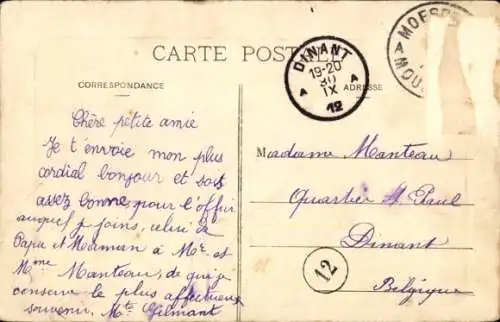 CARTE POSTALE
CORRESPONDANCE
ADRESSE
DINANT
19-20
30
IX
12
A A
MOESC
A MOU
Chère petite amie
Je t'envoie mon plus
cordial bonjour et sois
assez bonne pour l'offrir
auquel je joins, celui de
Papa et Maman à Mr. et
Mme Manteau, de qui je
conserve le plus affectueux
souvenir. Gilmant
Madame Manteau
Quartier St. Paul
Dinant
Belgique
12